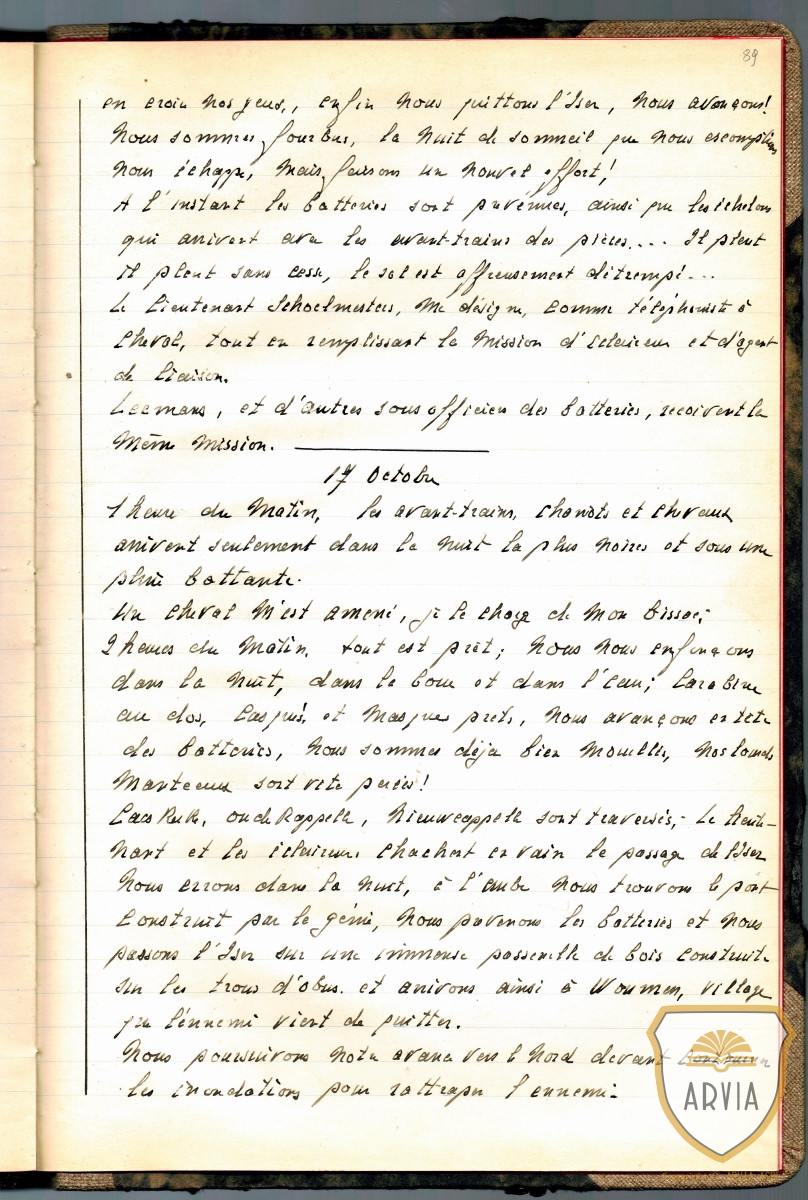 89
en croire nos yeux,, enfin nous quittons l'Iser, nous avançons!
Nous sommes fourbus, la nuit de sommeil que nous escomptions
nous échappe, mais, faisons un nouvel effort!
A l'instant les batteries sont prévenues, ainsi que les échelons
qui arrivent avec les avant-trains des pièces.... Il pleut
il pleut sans cesse, le sol est affreusement détrempé...
Le Lieutenant Schoelmesters, me désigne, comme téléphoniste à
cheval, tout en remplissant la mission d'éclaireur et d'agent
de liaison.
Leemans, et d'autres sous officiers des batteries, reçoivent la
même mission.
17 Octobre
1 heure du Matin, les avant-trains, chariots et chevaux
arrivent seulement dans la nuit la plus noire et sous une
pluie battante.
Un cheval m'est amené, je le charge de mon bissac;
2 heures du Matin, tout est prêt; nous nous enfonçons
dans la nuit, dans la boue et dans l'eau; carabine
au dos, casqués, et masques prêts, nous avançons en tête
des batteries, nous sommes déja bien mouillés, nos lourds
manteaux sont vite percés!
Caeskerke, oudekappelle, Nieuwcappelle sont traversés,- Le lieute-
nant et les éclaireurs cherchent en vain le passage de l'Iser
Nous errons dans la nuit, à l'aube nous trouvons le pont
construit par le génie, nous prévenons les batteries et nous
passons l'Iser sur une immense passerelle de bois construite
sur les trous d'obus. et arrivons ainsi à Woumen, village
que l'énnemi vient de quitter.
Nous poursuivons notre avance vers le Nord devant
les inondations pour rattraper l'ennemi-
ARVIA